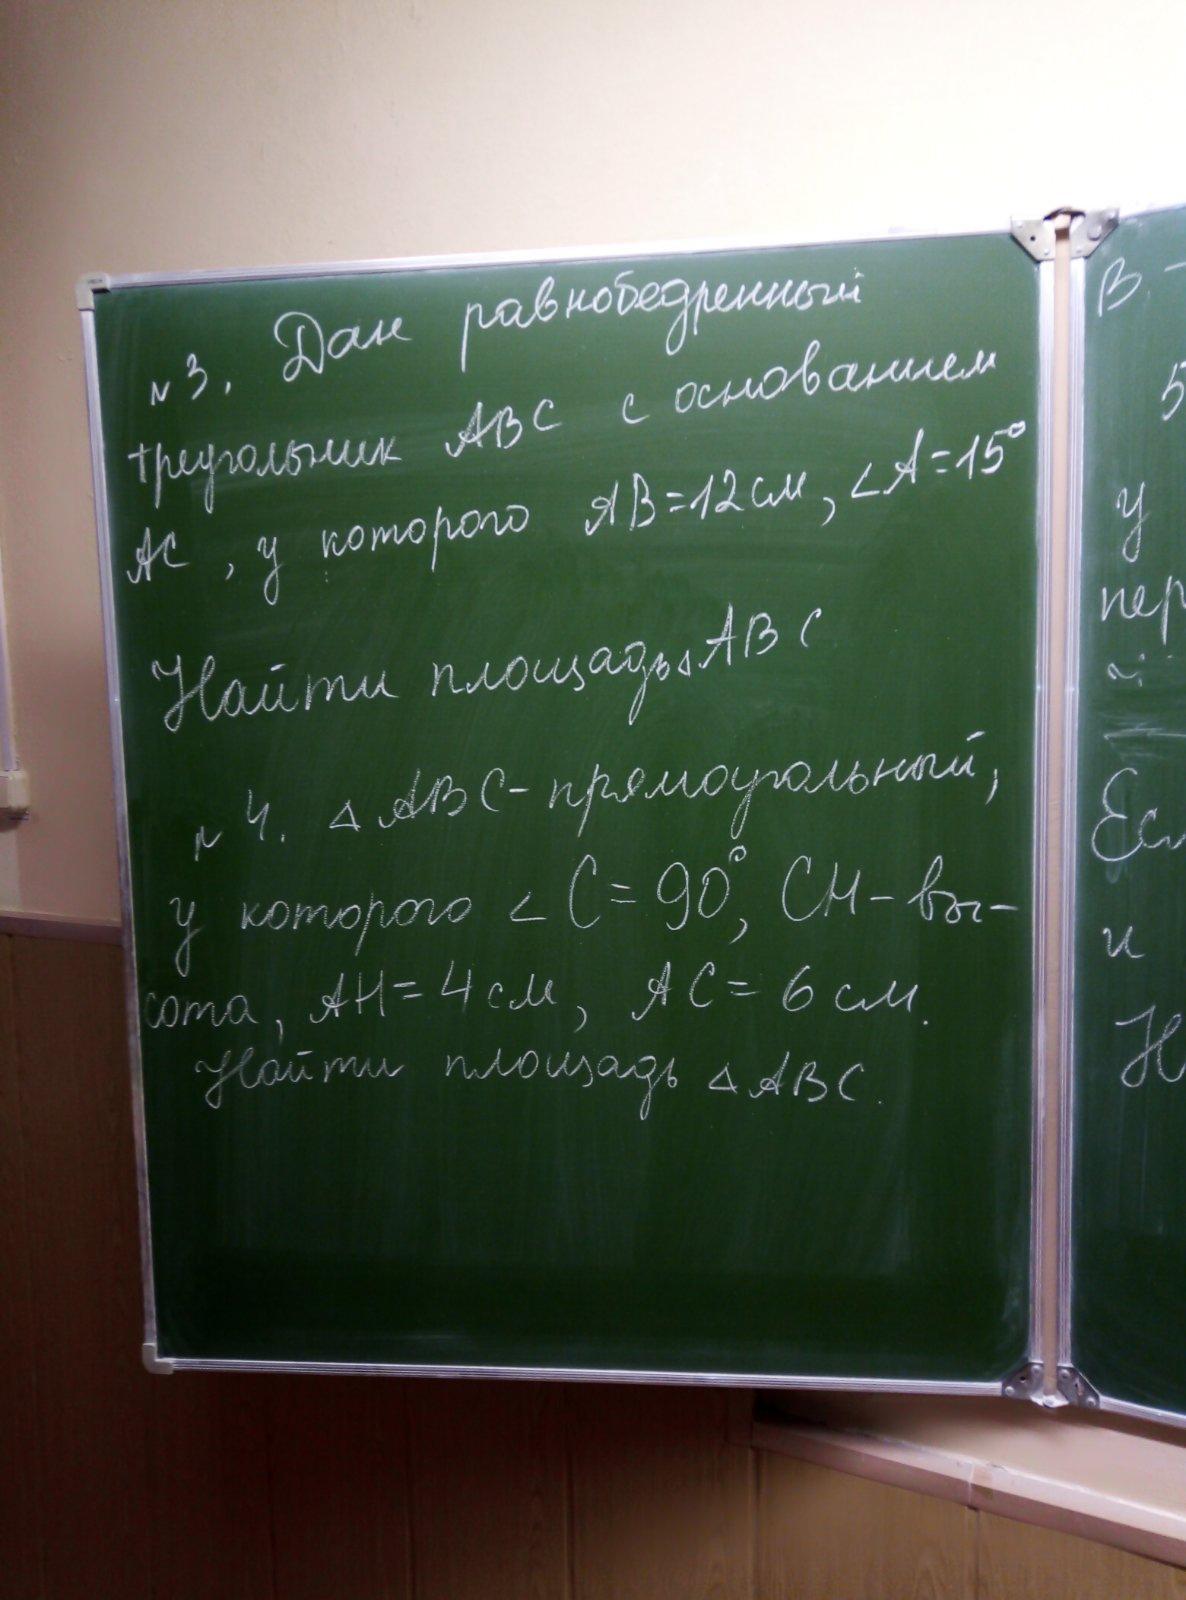 N3. Дан равнобедренный
треугольник ABC с основанием
AC, у которого AB=12см, ∠A=15°
Найти площадь △ABC
N4. △ABC - прямоугольный,
у которого ∠C=90°, CH - вы-
сота, AH=4см, AC=6см.
Найти площадь △ABC.
В -
5
у
пер
Есл
и
Н